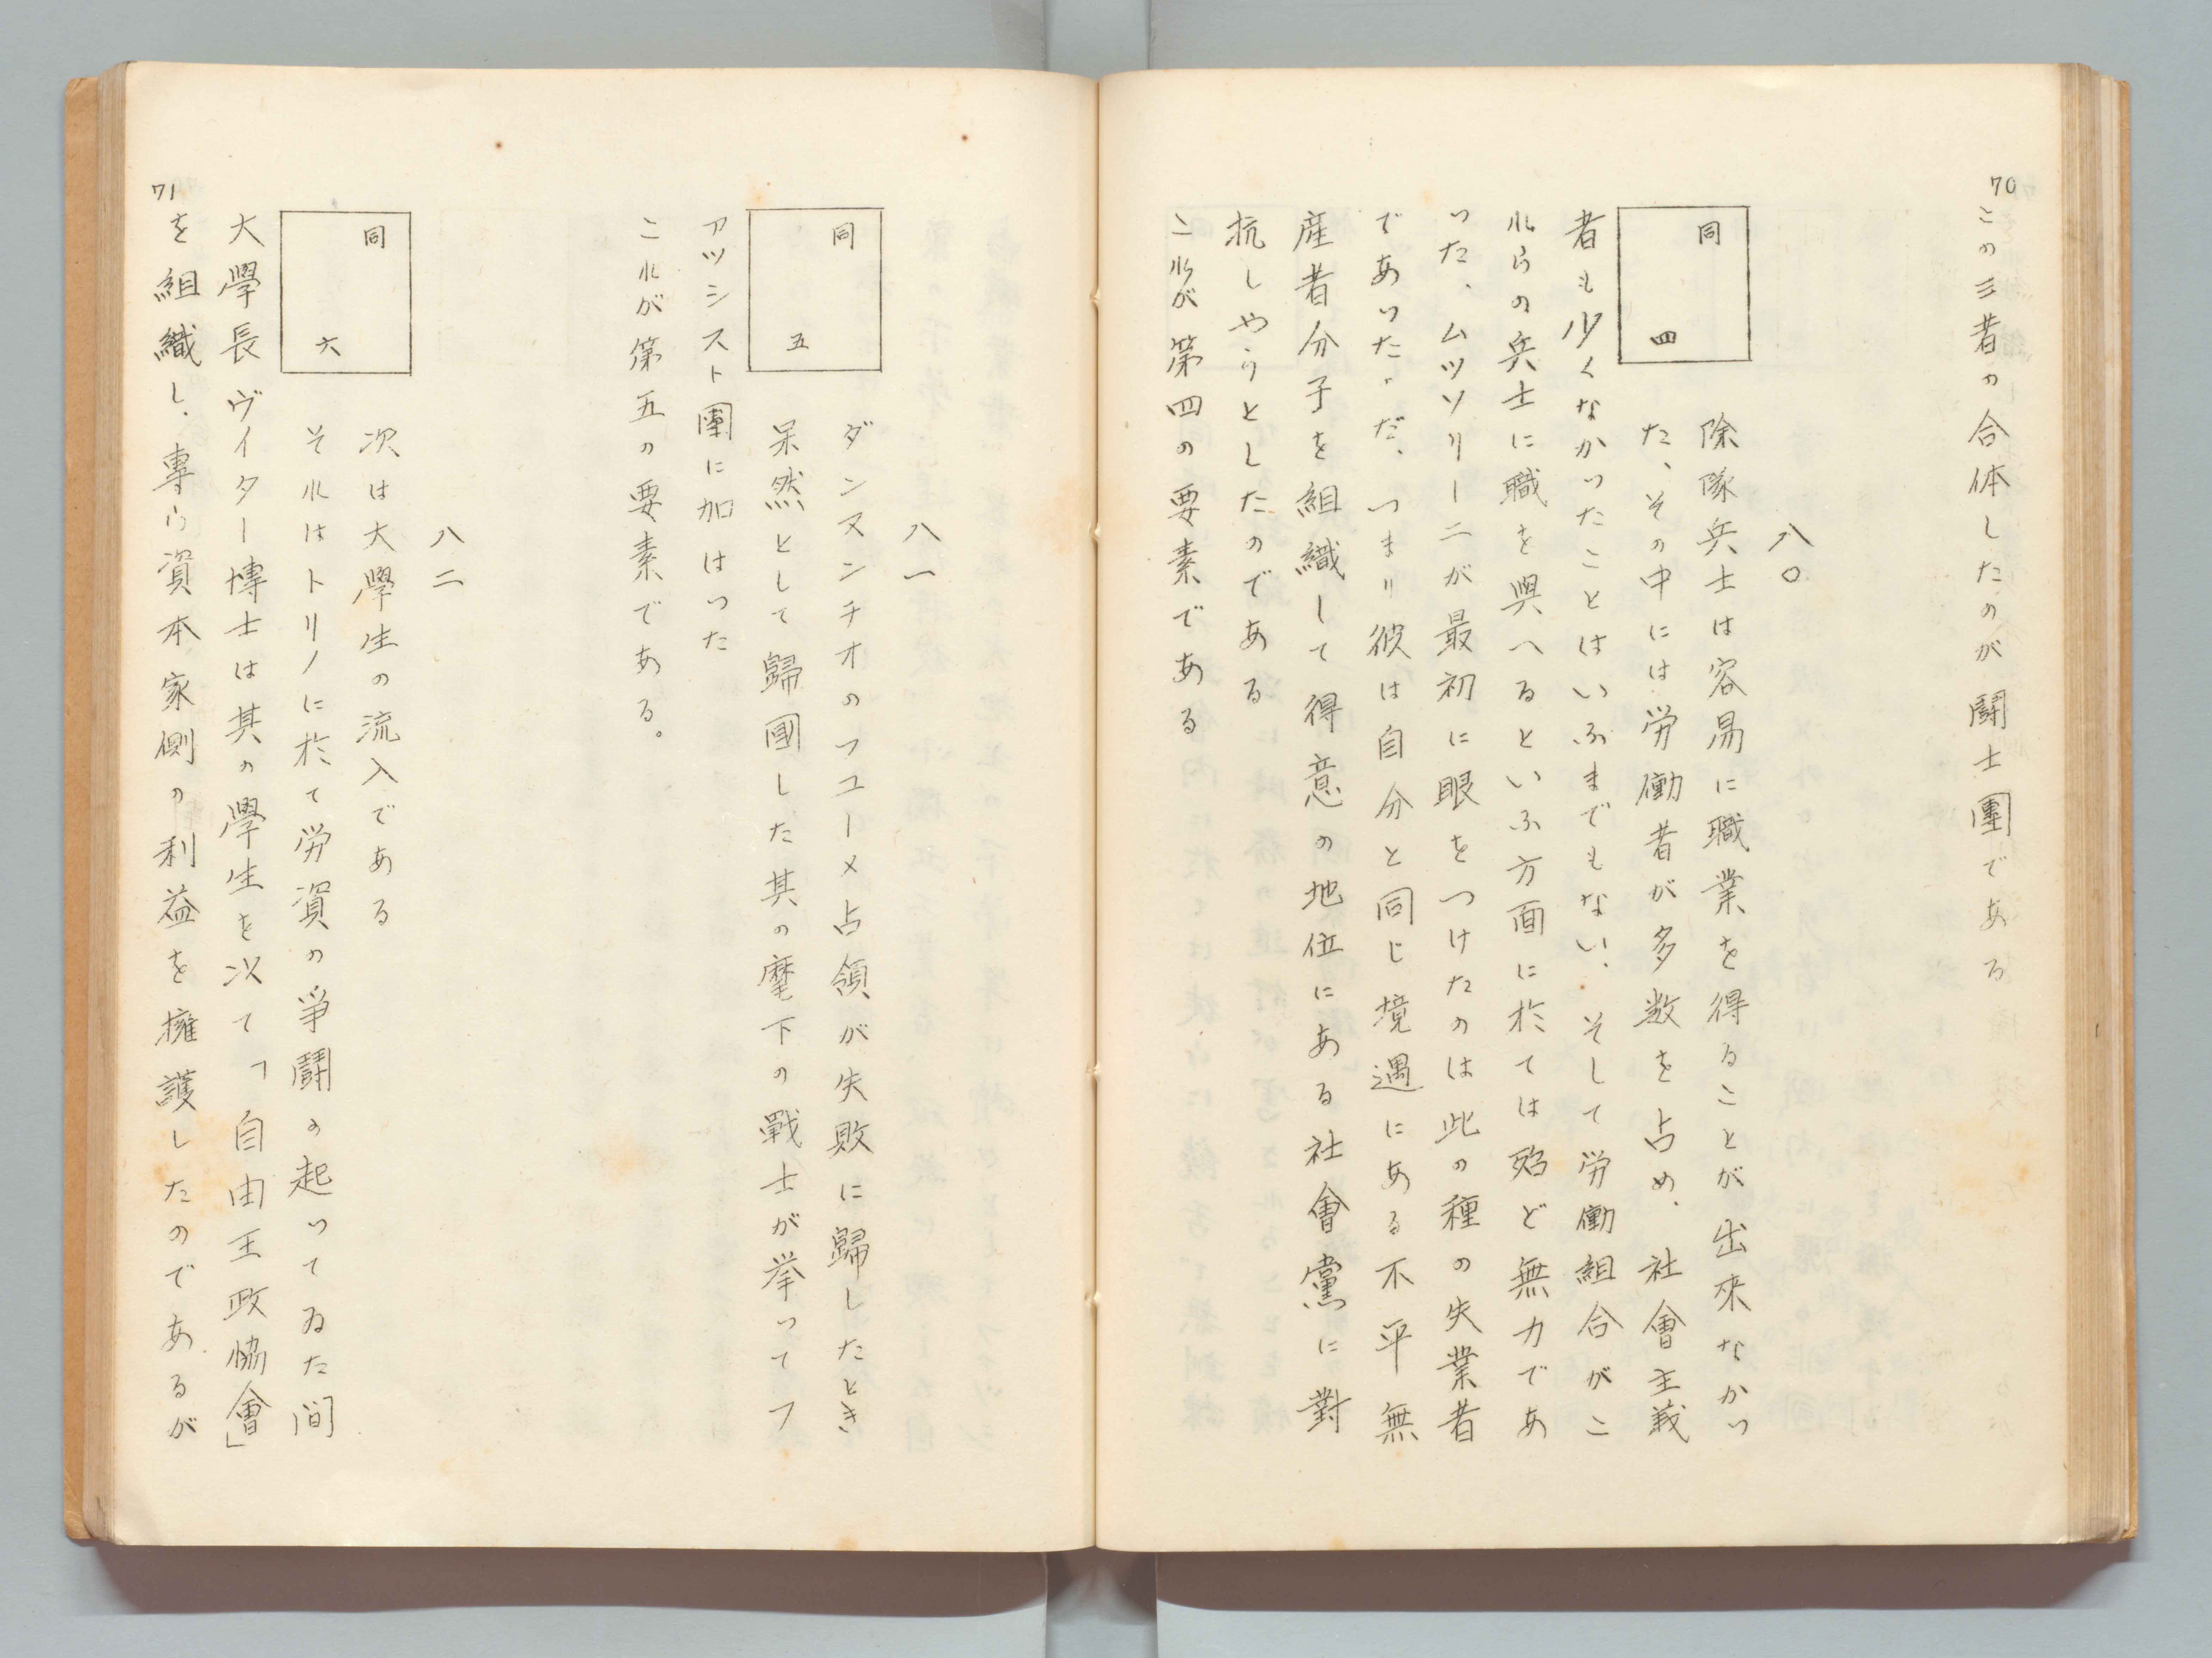 70
この三者の合体したのが闘士團である
八〇
同 四
除隊兵士は容易に職業を得ることが出來なかつ
た、その中には労働者が多数を占め、社會主義
者も少くなかつたことはいふまでもない、そして労働組合がこ
れらの兵士に職を與へるといふ方面に於ては殆ど無力であ
つた、ムツソリーニが最初に眼をつけたのは此の種の失業者
であつた、だ、つまり彼は自分と同じ境遇にある不平無
産者分子を組織して得意の地位にある社會黨に對
抗しやうとしたのである
これが第四の要素である
八一
同 五
ダンヌンチオのフユーメ占領が失敗に歸したとき
呆然として歸國した其の麾下の戰士が挙つてフ
アツシスト團に加はつた
これが第五の要素である。
八二
同 六
次は大學生の流入である
それはトリノに於て労資の爭闘の起つてゐた間
大學長ヴイター博士は其の學生を以て「自由王政協會」
71
を組織し、專ら資本家側の利益を擁護したのであるが